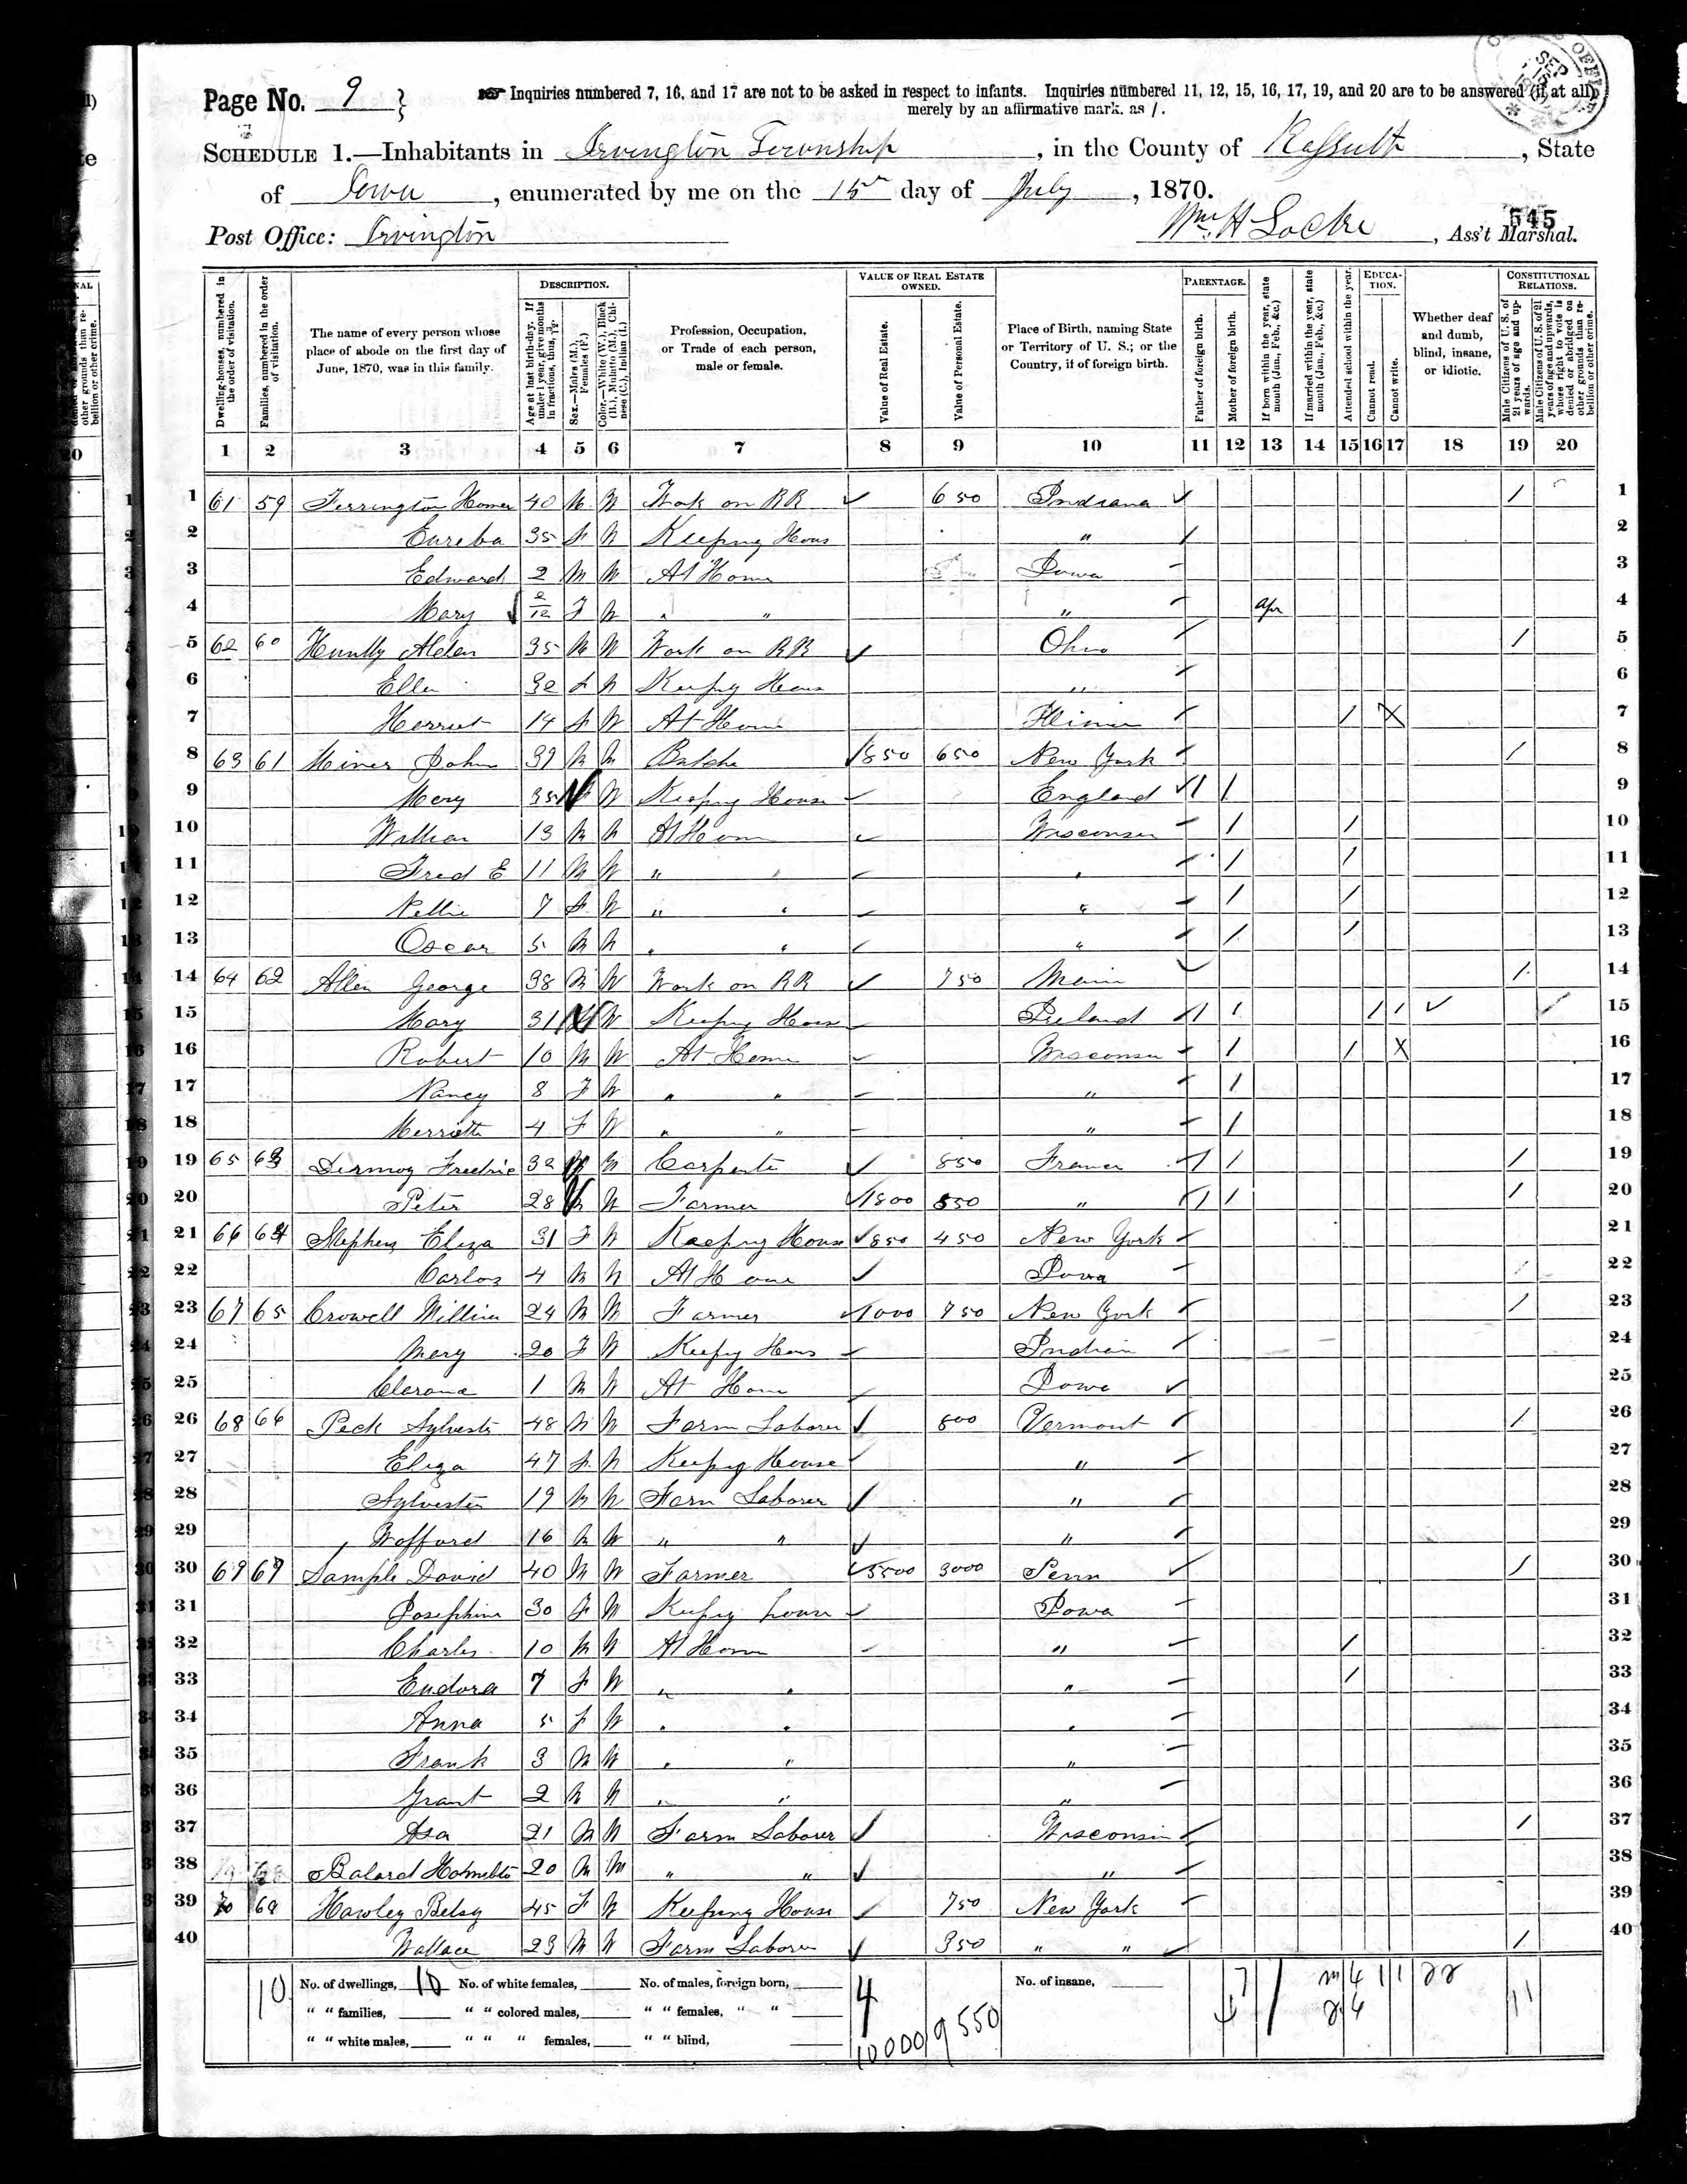 Page No. 9 }
Inquiries numbered 7, 16, and 17 are not to be asked in respect to infants. Inquiries numbered 11, 12, 15, 16, 17, 19, and 20 are to be answered (if at all)
merely by an affirmative mark, as /.
SCHEDULE 1.—Inhabitants in Irvington Township, in the County of Kossuth, State
of Iowa, enumerated by me on the 15th day of July, 1870.
545
Post Office: Irvington Wm H Locke, Ass't Marshal.
Dwelling-houses, numbered in the order of visitation.
Families, numbered in the order of visitation.
The name of every person whose place of abode on the first day of June, 1870, was in this family.
DESCRIPTION.
Age at last birth-day. If under 1 year, give months in fractions, thus, 3/12.
Sex.—Males (M.), Females (F.)
Color.—White (W.), Black (B.), Mulatto (M.), Chinese (C.), Indian (I.)
Profession, Occupation, or Trade of each person, male or female.
VALUE OF REAL ESTATE OWNED.
Value of Real Estate.
Value of Personal Estate.
Place of Birth, naming State or Territory of U. S.; or the Country, if of foreign birth.
PARENTAGE.
Father of foreign birth.
Mother of foreign birth.
If born within the year, state month (Jan., Feb., &c.)
If married within the year, state month (Jan., Feb., &c.)
Attended school within the year.
EDUCATION.
Cannot read.
Cannot write.
Whether deaf and dumb, blind, insane, or idiotic.
CONSTITUTIONAL RELATIONS.
Male Citizens of U. S. of 21 years of age and upwards.
Male Citizens of U. S. of 21 years of age and upwards, whose right to vote is denied or abridged on other grounds than rebellion or other crime.
1 2 3 4 5 6 7 8 9 10 11 12 13 14 15 16 17 18 19 20
1 61 59 Homer 40 M W Work on RR 650 Indiana / 1
2 Eureba 35 F W Keeping Hous " 2
3 Edward 2 M W At Home Iowa 3
4 Mary 2/12 F W " " " Apr 4
5 62 60 35 M W Work on RR Ohio / 5
6 Ellen 32 F W Keepig Hous " 6
7 Herriet 14 F W At Home / X 7
8 63 61 Miner John 39 M W 850 650 New York / 8
9 Mery 35 F W Keeping House England / / 9
10 William 13 M W At Home Wisconsin / / 10
11 Fred E 11 M W " " " / / 11
12 Nellie 7 F W " " " / / 12
13 Oscar 5 M W " " " / / 13
14 64 62 Allen George 38 M W Work on RR 750 Main / 14
15 Mary 31 F W Keepng Hous Ireland / / / / 15
16 Robert 10 M W At Home Wisconsin / / X 16
17 Nancy 8 F W " " " / 17
18 Merriette 4 F W " " " / 18
19 65 63 Fredric 32 M W Carpenter 850 France / / / 19
20 Peter 28 M W Farmer 1800 550 " / / / 20
21 66 64 Stephens Eliza 31 F W Keeping House 850 450 New York 21
22 Carlos 4 M W At Home Iowa 22
23 67 65 Crowell William 24 M W Farmer 1000 750 New York / 23
24 Mary 20 F W Keepng Hous Indian 24
25 1 M W At Home Iowa 25
26 68 66 Peck Sylvester 48 M W Farm Laborer 800 Vermont / 26
27 Eliza 47 F W Keepng House " 27
28 Sylvester 19 M W Farm Laborer " 28
29 Wofford 16 M W " " " 29
30 69 67 Sample David 40 M W Farmer 5500 3000 Penn / 30
31 Josephine 30 F W Keepig house Iowa 31
32 Charles 10 M W At Home " / 32
33 Eudora 7 F W " " " / 33
34 Anna 5 F W " " " 34
35 Frank 3 M W " " " 35
36 Grant 2 M W " " " 36
37 Asa 21 M W Farm Laborer Wisconsin / 37
38 68 Balard 20 M W " " " 38
39 70 69 Hawley Betsy 45 F W Keeping House 750 New York 39
40 Wallace 23 M W Farm Laborer 350 " " / 40
10 No. of dwellings, 10 No. of white females, No. of males, foreign born, 4 No. of insane, 7 / m/4 1 1 22 11
" " families, " " colored males, " " females, " " 4
" " white males, " " " females, " " blind, 10000 9550